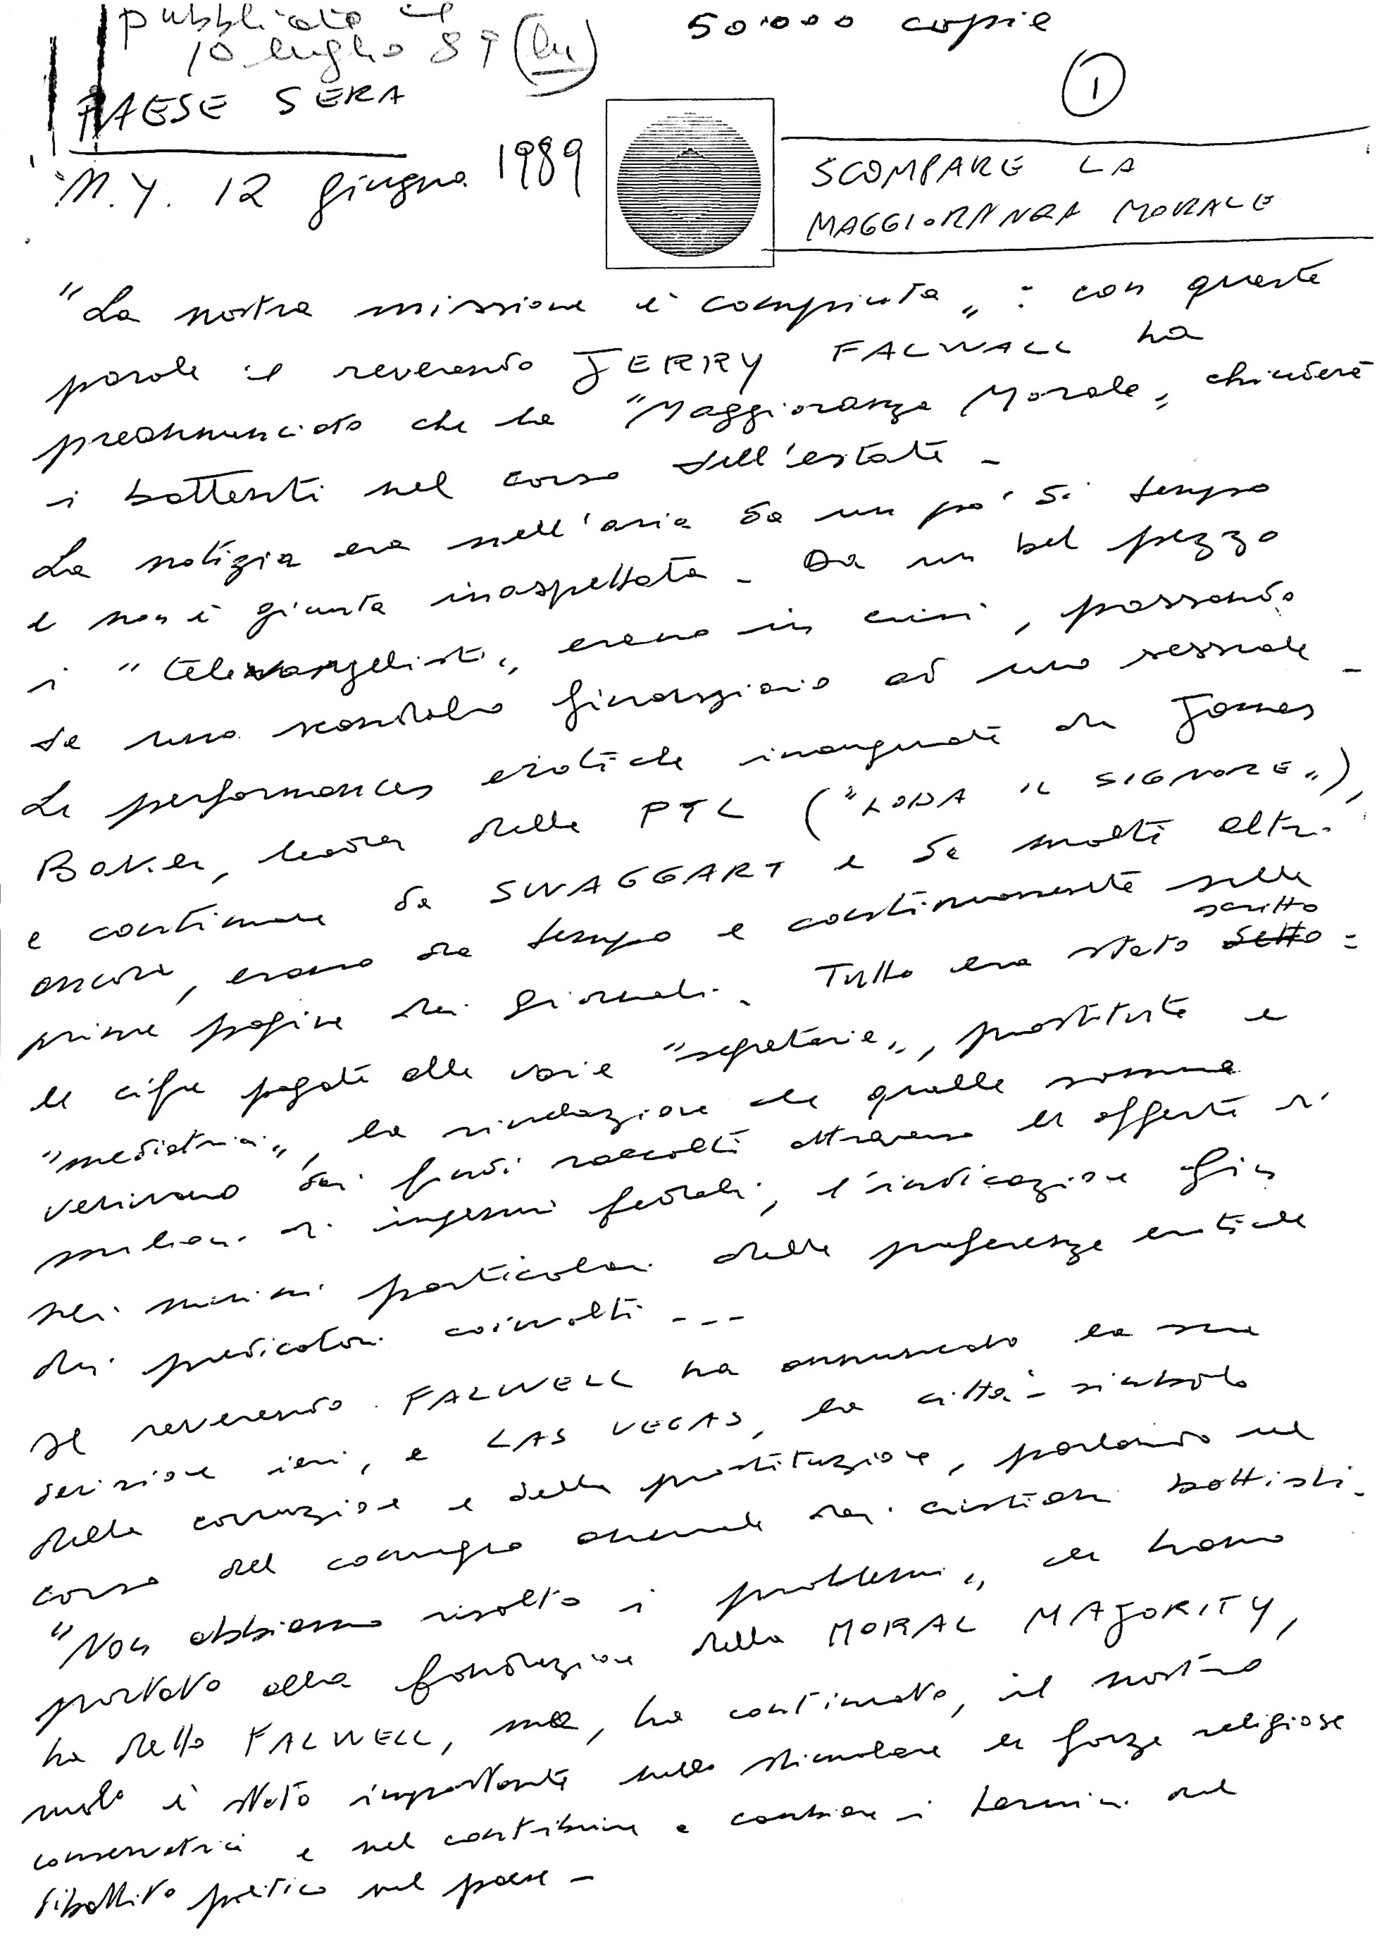 pubblicato il
10 luglio 89 (lu)
50.000 copie
1
PAESE SERA
N.Y. 12 giugno 1989
SCOMPARE LA
MAGGIORANZA MORALE
"La nostra missione è compiuta": con queste
parole il reverendo JERRY FALWALL ha
preannunciato che la "Maggioranza Morale" chiuderà
i battenti nel corso dell'estate -
La notizia era nell'aria da un pò di tempo
e non è giunta inaspettata - Da un bel pezzo
i "televangelisti" erano in crisi, passando
da uno scandalo finanziario ad uno sessuale -
Le performances erotiche inaugurate da James
Baker, leader della PTL ("LODA IL SIGNORE"),
e continuate da SWAGGART e da molti altri
ancora, erano da tempo e continuamente sulle
prime pagine dei giornali. Tutto era stato detto scritto =
le cifre pagate alle varie "segretarie", prostitute e
"mediatrici", la rivelazione che quelle somme
venivano dai fondi raccolti attraverso le offerte di
milioni di ingenui fedeli, l'indicazione fin
nei minimi particolari delle preferenze erotiche
dei predicatori coinvolti - - -
Il reverendo FALWELL ha annunciato la sua
decisione ieri, a LAS VEGAS, la città-simbolo
della corruzione e della prostituzione, parlando nel
corso del convegno annuale dei cristiani battisti.
"Non abbiamo risolto i problemi" che hanno
portato alla fondazione della MORAL MAJORITY,
ha detto FALWELL, ma, ha continuato, il nostro
ruolo è stato importante nello stimolare le forze religiose
conservatrici e nel contribuire a cambiare i termini del
dibattito politico nel paese -